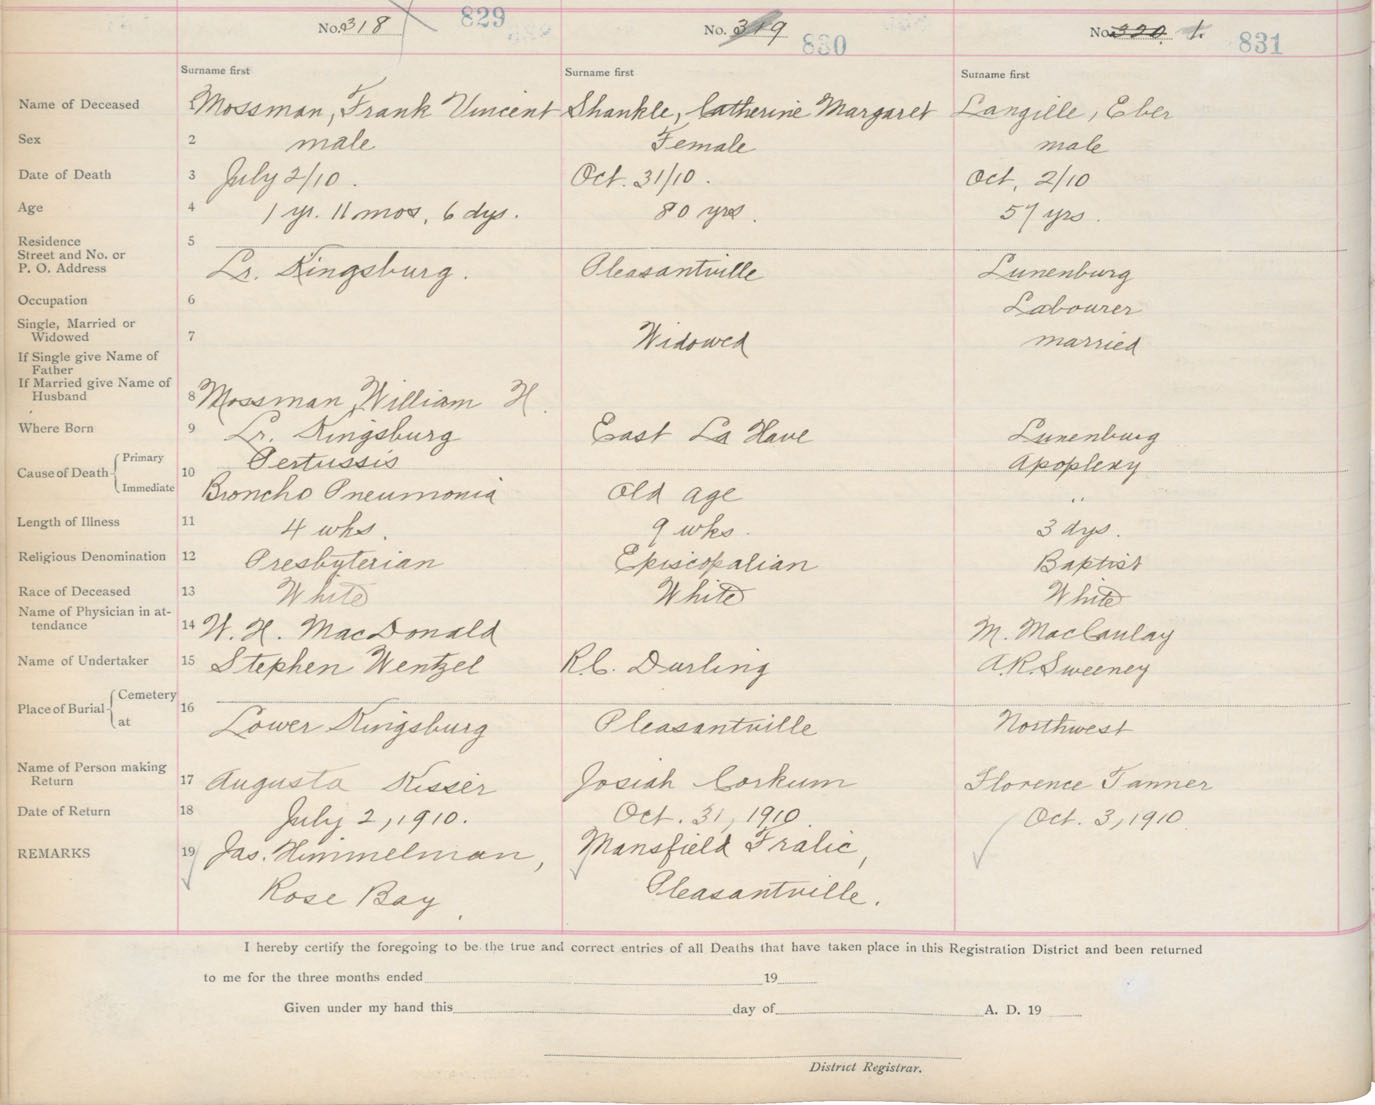 No. 318 829 No. 319 830 No. 320 1. 831
Surname first Surname first Surname first
Name of Deceased 1 Mossman, Frank Vincent Shankle, Catherine Margaret Langille, Eber
Sex 2 male Female male
Date of Death 3 July 2/10. Oct. 31/10. Oct, 2/10
Age 4 1 yr. 11 mos, 6 dys. 80 yrs. 57 yrs.
Residence 5
Street and No. or
P. O. Address Lr. Kingsburg. Pleasantville Lunenburg
Occupation 6 Labourer
Single, Married or
Widowed 7 Widowed married
If Single give Name of
Father
If Married give Name of
Husband 8 Mossman, William H.
Where Born 9 Lr. Kingsburg East La Have Lunenburg
Primary Pertussis Apoplexy
Cause of Death 10
Immediate Broncho Pneumonia Old age "
Length of Illness 11 4 wks. 9 wks. 3 dys.
Religious Denomination 12 Presbyterian Episcopalian Baptist
Race of Deceased 13 White White White
Name of Physician in at-
tendance 14 W. H. MacDonald M. MacCaulay
Name of Undertaker 15 Stephen Wentzel R.C. Durling A.R. Sweeney
Cemetery
Place of Burial 16
at Lower Kingsburg Pleasantville Northwest
Name of Person making
Return 17 Augusta Kisser Josiah Corkum Florence Tanner
Date of Return 18 July 2, 1910. Oct. 31, 1910 Oct. 3, 1910
REMARKS 19 Jas. Himmelman, Mansfield Fralic,
Rose Bay. Pleasantville.
I hereby certify the foregoing to be the true and correct entries of all Deaths that have taken place in this Registration District and been returned
to me for the three months ended 19
Given under my hand this day of A. D. 19
District Registrar.